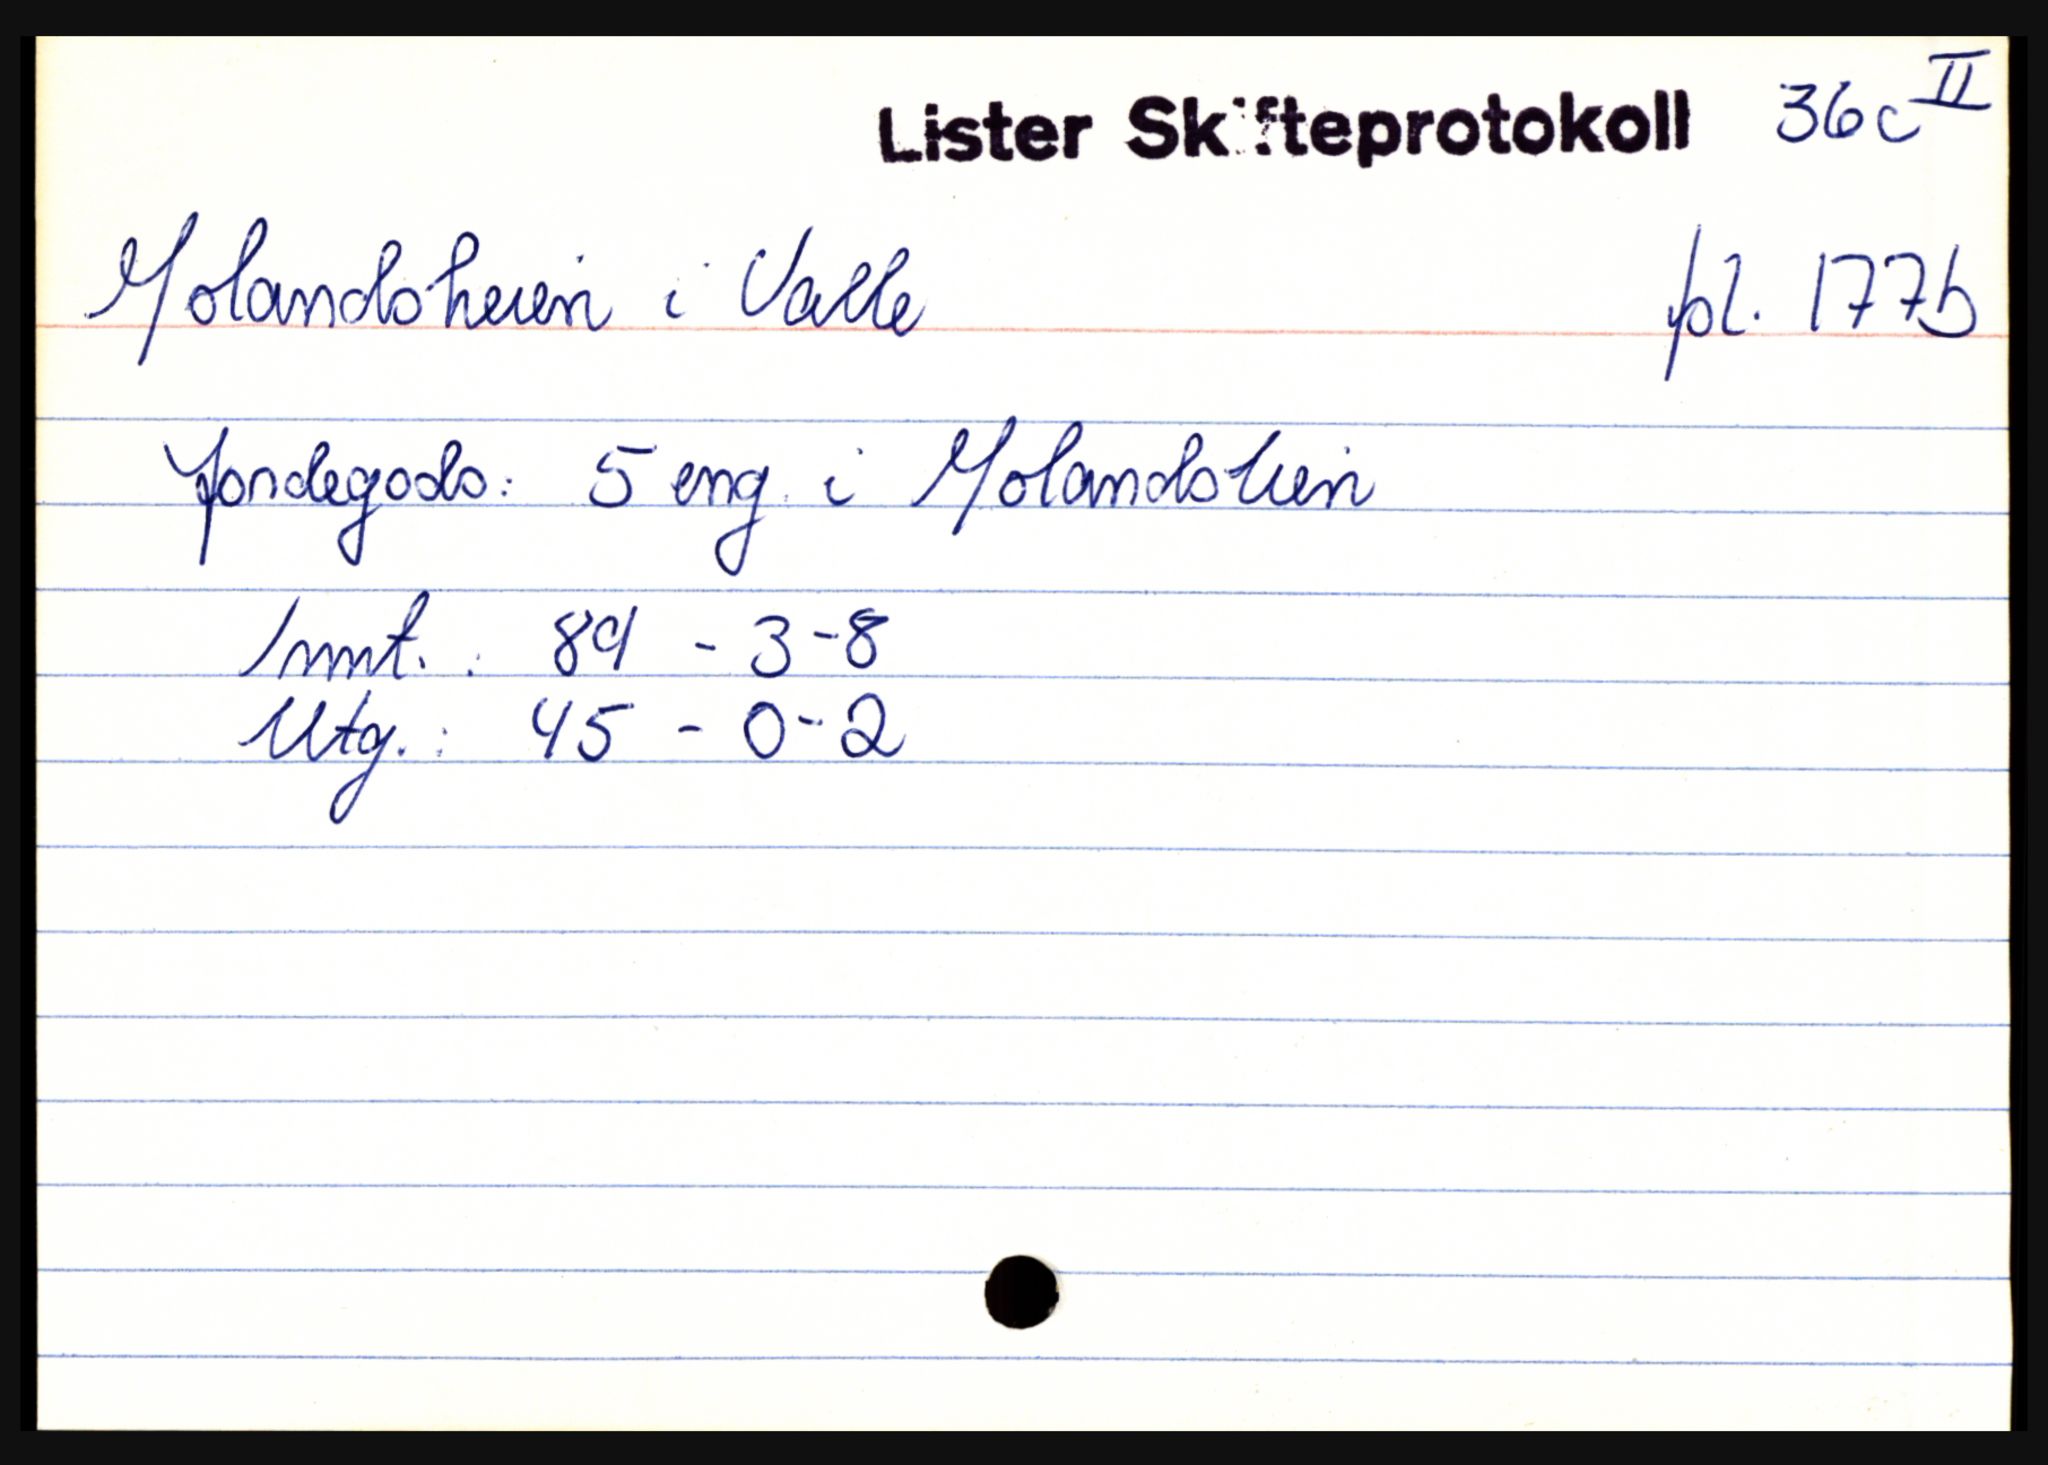 Lister Skifteprotokoll 36c II
Molandsheien i Valle fol. 177b
Jordegods: 5 eng i Molandshein
Innt.: 89 - 3 - 8
Utg.: 45 - 0 - 2